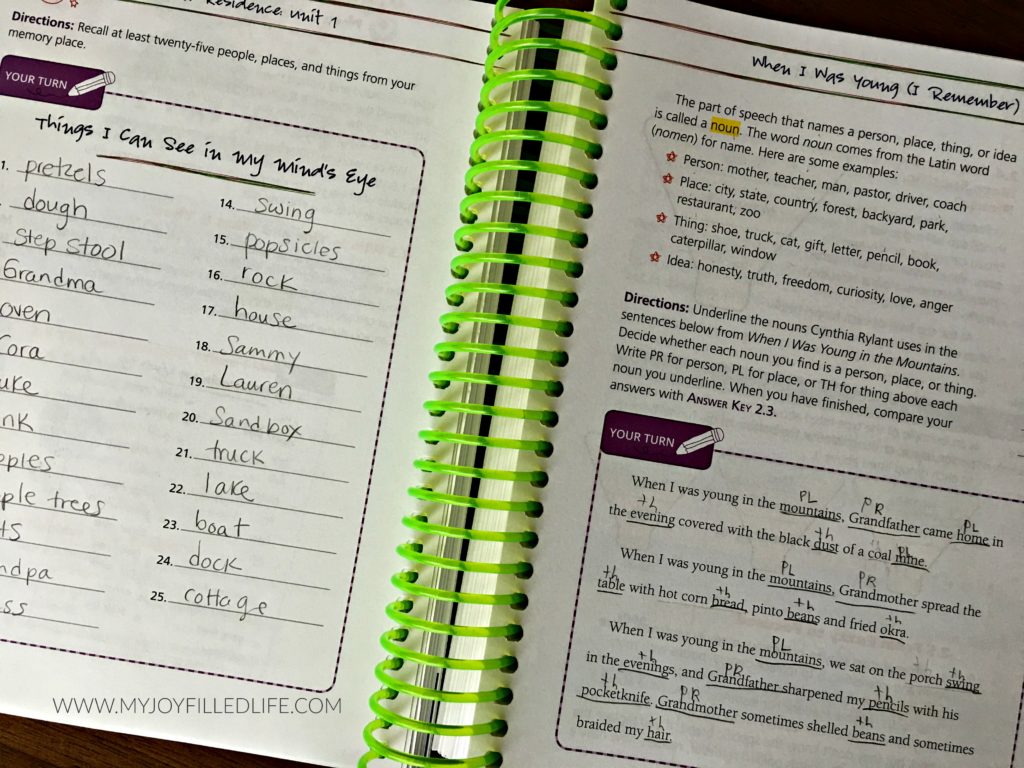 Residence: unit 1
Directions: Recall at least twenty-five people, places, and things from your
memory place.
YOUR TURN
Things I Can See in my Mind's Eye
1. pretzels
dough
step stool
Grandma
oven
Cora
uke
nk
pples
ple trees
ts
ndpa
ss
14. swing
15. popsicles
16. rock
17. house
18. Sammy
19. Lauren
20. Sandbox
21. truck
22. lake
23. boat
24. dock
25. cottage
WWW.MYJOYFILLEDLIFE.COM
When I Was Young (I Remember)
The part of speech that names a person, place, thing, or idea
is called a noun. The word noun comes from the Latin word
(nomen) for name. Here are some examples:
Person: mother, teacher, man, pastor, driver, coach
Place: city, state, country, forest, backyard, park,
restaurant, zoo
Thing: shoe, truck, cat, gift, letter, pencil, book,
caterpillar, window
Idea: honesty, truth, freedom, curiosity, love, anger
Directions: Underline the nouns Cynthia Rylant uses in the
sentences below from When I Was Young in the Mountains.
Decide whether each noun you find is a person, place, or thing.
Write PR for person, PL for place, or TH for thing above each
noun you underline. When you have finished, compare your
answers with ANSWER KEY 2.3.
YOUR TURN
PL PR PL
When I was young in the mountains, Grandfather came home in
th th PL
the evening covered with the black dust of a coal mine.
PL PR
When I was young in the mountains, Grandmother spread the
th th th th
table with hot corn bread, pinto beans and fried okra.
PL
When I was young in the mountains, we sat on the porch swing
th PR th th
in the evenings, and Grandfather sharpened my pencils with his
th PR th
pocketknife. Grandmother sometimes shelled beans and sometimes
th
braided my hair.